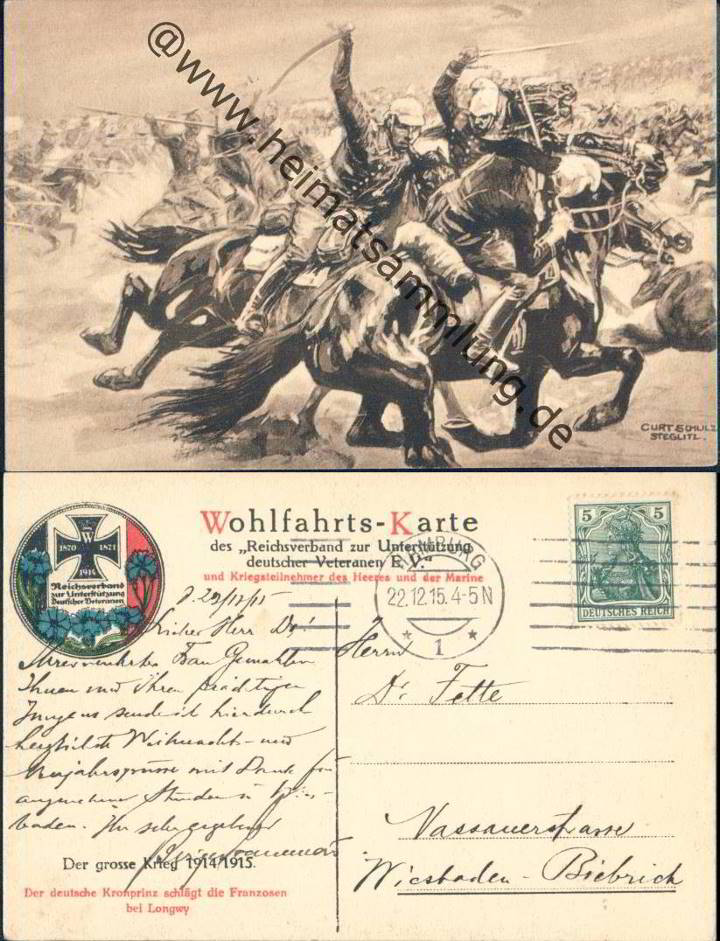 @www.heimatsammlung.de
CURT SCHULZ
STEGLITZ.
Wohlfahrts-Karte
des „Reichsverband zur Unterstützung
deutscher Veteranen E.V."
und Kriegsteilnehmer des Heeres und der Marine
1870 W 1871
1914
Reichsverband
zur Unterstützung
Deutscher Veteranen
BURG
22.12.15.4-5N
* 1 *
5 5
DEUTSCHES REICH
Lieber Herr Dr!
Ihrer verehrten Frau Gemahlin
Ihnen und Ihren prächtigen
Jungens sende ich hierdurch
herzlichste Weihnachts- und
Neujahrsgrüsse mit Dank für
angenehme Stunden in Wies-
baden. Ihr sehr ergebener
Herrn
Dr. Fette
Nassauerstrasse
Wiesbaden-Biebrich
Der grosse Krieg 1914/1915.
Der deutsche Kronprinz schlägt die Franzosen
bei Longwy